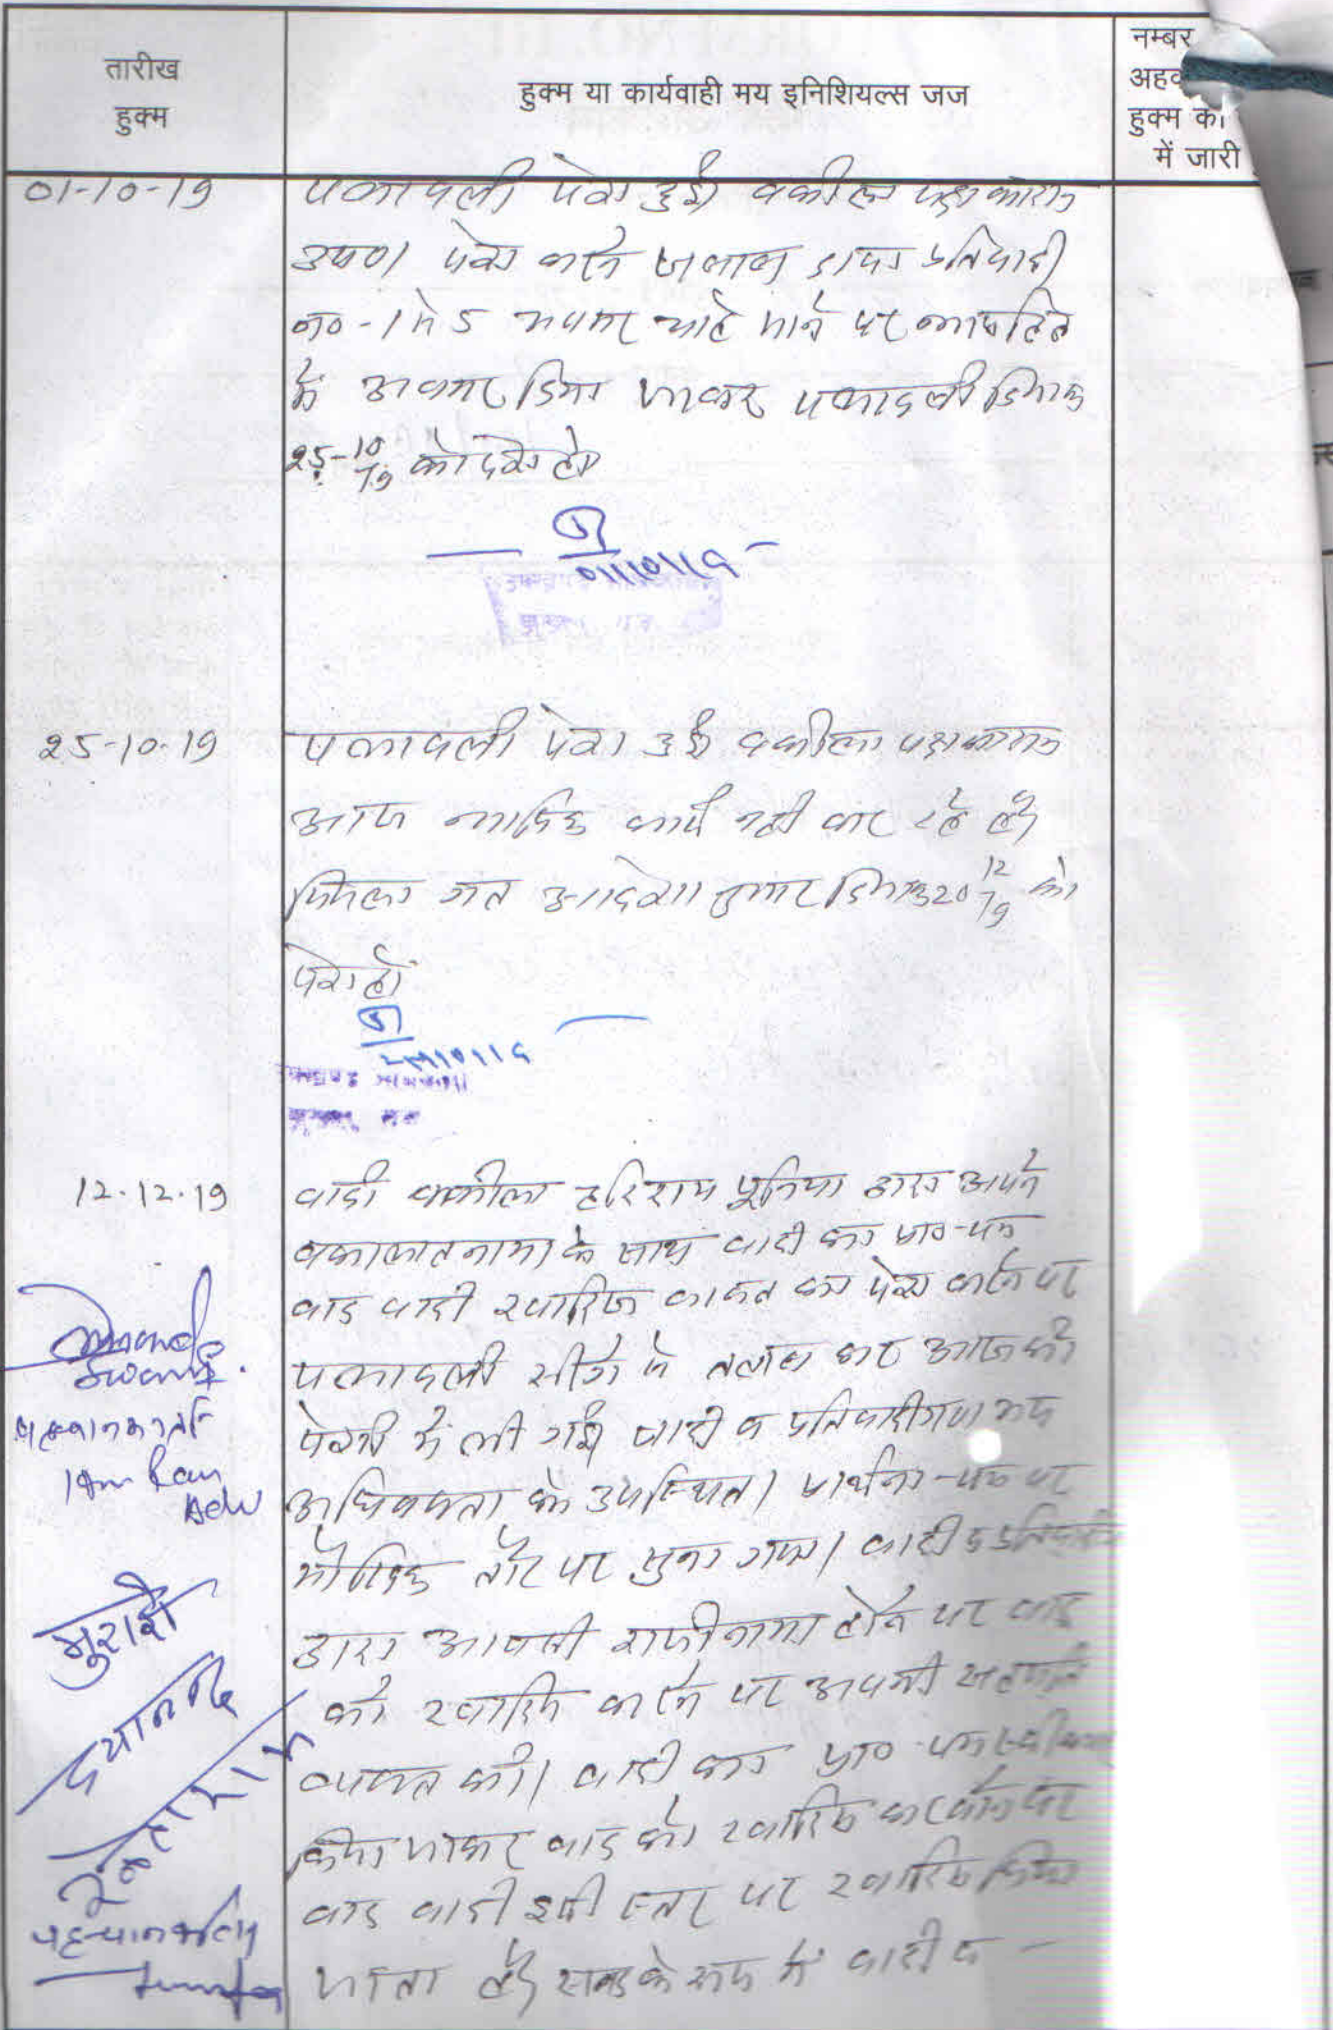 तारीख
हुक्म
हुक्म या कार्यवाही मय इनिशियल्स जज
नम्बर
अहव
हुक्म की
में जारी
01-10-19
पत्रावली पेश हुई वकील पक्षकारान
उप0। पेश करने जवाब दावा प्रतिवादी
न0-1 से 5 अवसर चाहे जाने पर न्यायहित
में अवसर दिया जाकर पत्रावली दिनांक
25-10/19 को पेश हो
01/10/19
25-10-19
पत्रावली पेश हुई वकील पक्षकारान
आज न्यायिक कार्य नही कर रहे है।
मिसल गत आदेशानुसार दिनांक 20 12/19 को
पेश हो
12.12.19
वादी वकील हरिराम पूनिया द्वारा अपने
वकालतनामा के साथ वादी का प्रा0-पत्र
वाद वादी खारिज का पेश करने पर
पत्रावली सीगे से तलब कर आज की
पेशी में ली गई। वादी व प्रतिवादीगण मय
अधिवक्ता के उपस्थित। प्रार्थना-पत्र पर
मौखिक तौर पर सुना गया। वादी व
द्वारा आपसी राजीनामा होने पर वाद
को खारिज करने पर अपनी सहमति
व्यक्त की। वादी का प्रा0-पत्र स्वीकार
किया जाकर वाद को खारिज पर
वाद वादी इसी स्तर पर खारिज किया
जाता है। के रूप में वादी व -
पहचानकर्ता
Ram
Adv
मुरारी
दयानन्द
पहचानकर्ता